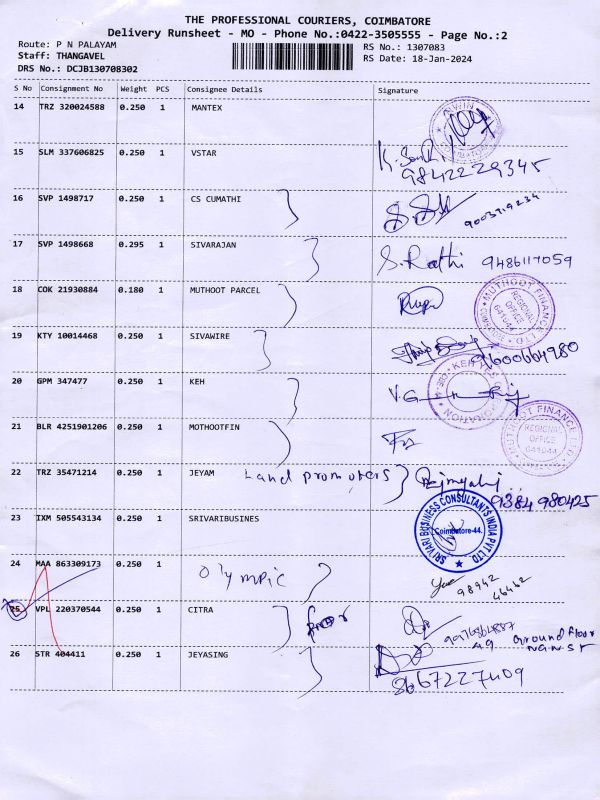 THE PROFESSIONAL COURIERS, COIMBATORE
Delivery Runsheet - MO - Phone No.:0422-3505555 - Page No.:2
Route: P N PALAYAM RS No.: 1307083
Staff: THANGAVEL RS Date: 18-Jan-2024
DRS No.: DCJB130708302
S No Consignment No Weight PCS Consignee Details Signature
14 TRZ 320024588 0.250 1 MANTEX
15 SLM 337606825 0.250 1 VSTAR
9842229345
16 SVP 1498717 0.250 1 CS CUMATHI
17 SVP 1498668 0.295 1 SIVARAJAN S. Rathi 9486117059
18 COK 21930884 0.180 1 MUTHOOT PARCEL
MUTHOOT FINANCE
REGIONAL
OFFICE
641044
19 KTY 10014468 0.250 1 SIVAWIRE
9600664980
20 GPM 347477 0.250 1 KEH
21 BLR 4251901206 0.250 1 MOTHOOTFIN
MUTHOOT FINANCE LTD
REGIONAL
OFFICE
641044
22 TRZ 35471214 0.250 1 JEYAM Land promoters
9384980425
23 IXM 505543134 0.250 1 SRIVARIBUSINES
SRI VARI BUSINESS CONSULTANTS INDIA PVT LTD
Coimbatore-44.
24 MAA 863309173 0.250 1 Olympic
98942
46462
25 VPL 220370544 0.250 1 CITRA
ground floor
26 STR 404411 0.250 1 JEYASING
8667227409